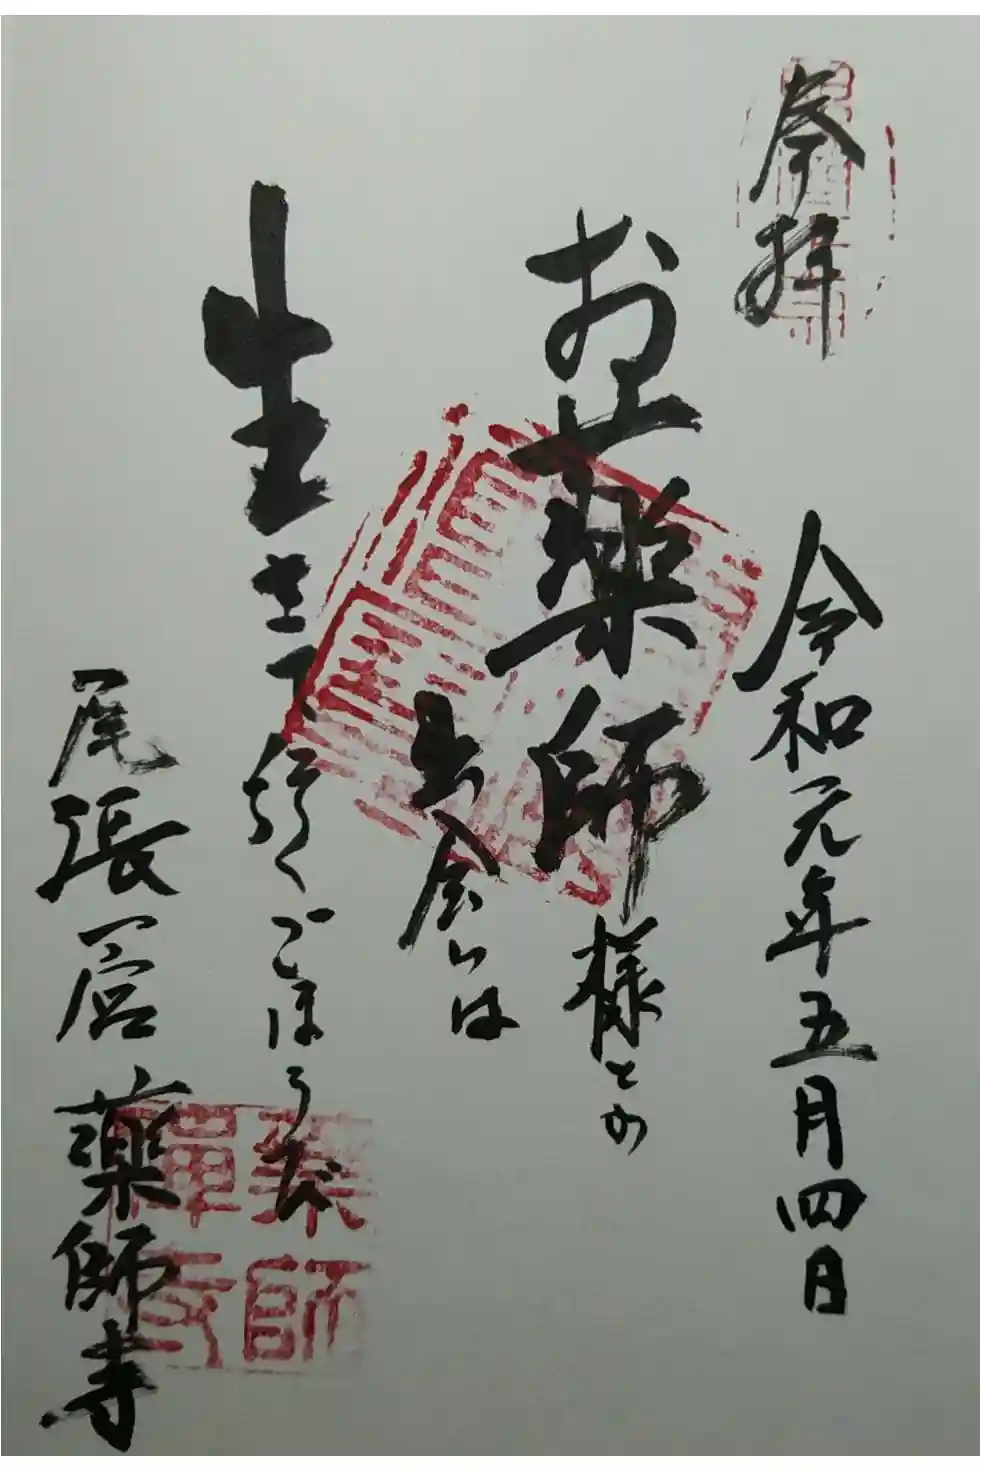 奉拝
令和元年五月四日
お薬師様との
出会いは
生きて行くごほうび
尾張㞍薬師寺
薬師
禅寺